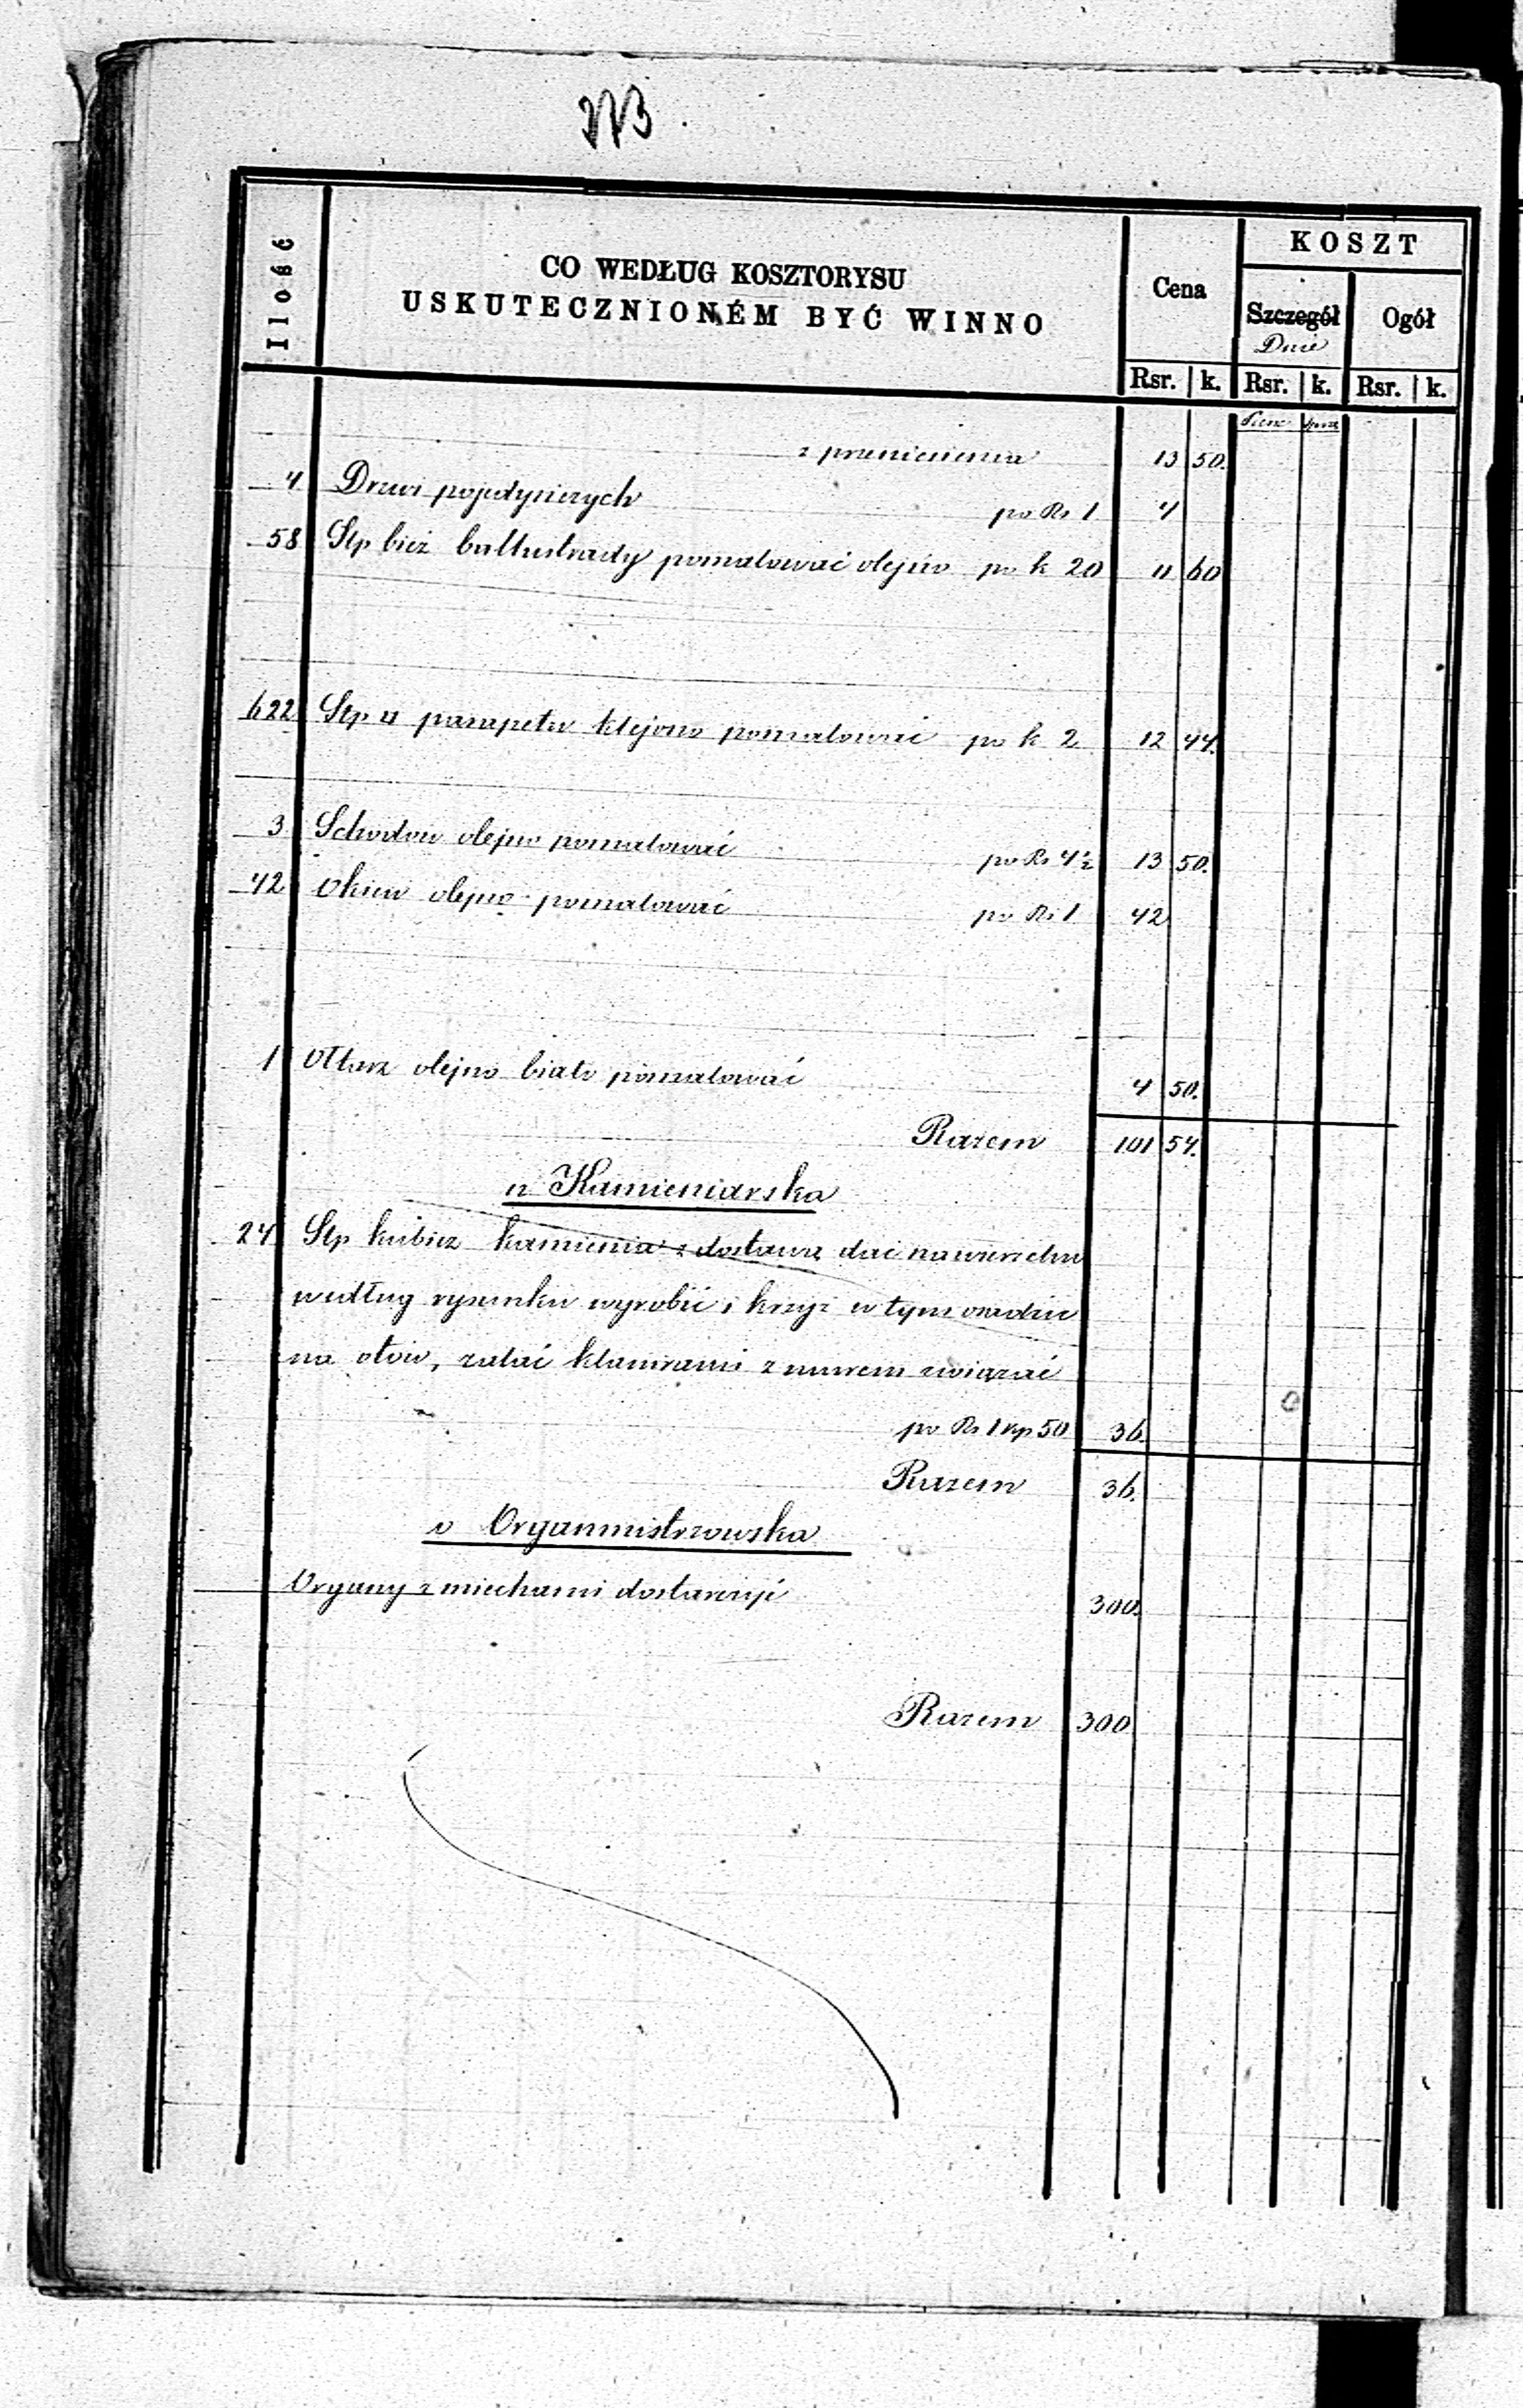 373
Ilość
CO WEDŁUG KOSZTORYSU
USKUTECZNIONÉM BYĆ WINNO
Cena
KOSZT
Szczegół
Ogół
Dnie
Rsr. k. Rsr. k. Rsr. k.
z przeniesienia 13 50.
4 Drzwi pojedynczych po Rs 1 4
58 Stp bież ballustrady pomalować olejno po k 20 11 60
622 Stp □ parapetu klejono pomalować po k 2 12 44.
3 Schodów olejno pomalować po Rs 4½ 13 50.
42 Okien olejno pomalować po Rs 1 42
1 Ołtarz olejno biało pomalować 4 50.
Razem 101 54.
n Kamieniarska
24 Stp kubicz kamienia z dostawą dać na wierzchu
według rysunku wyrobić i krzyż w tym osadzić
na ołów, zalać klamrami z murem związać
po Rs 1 kp 50 36.
Razem 36.
o Organmistrzowska
Organy z miechami dostarczyć 300.
Razem 300